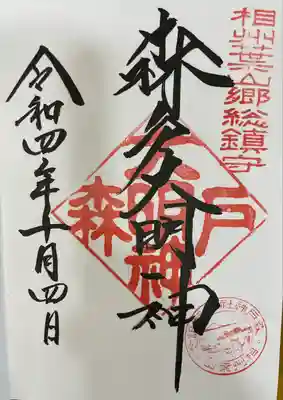 相州葉山郷総鎮守
森戸大明神
森戸
大明神
令和四年十月四日